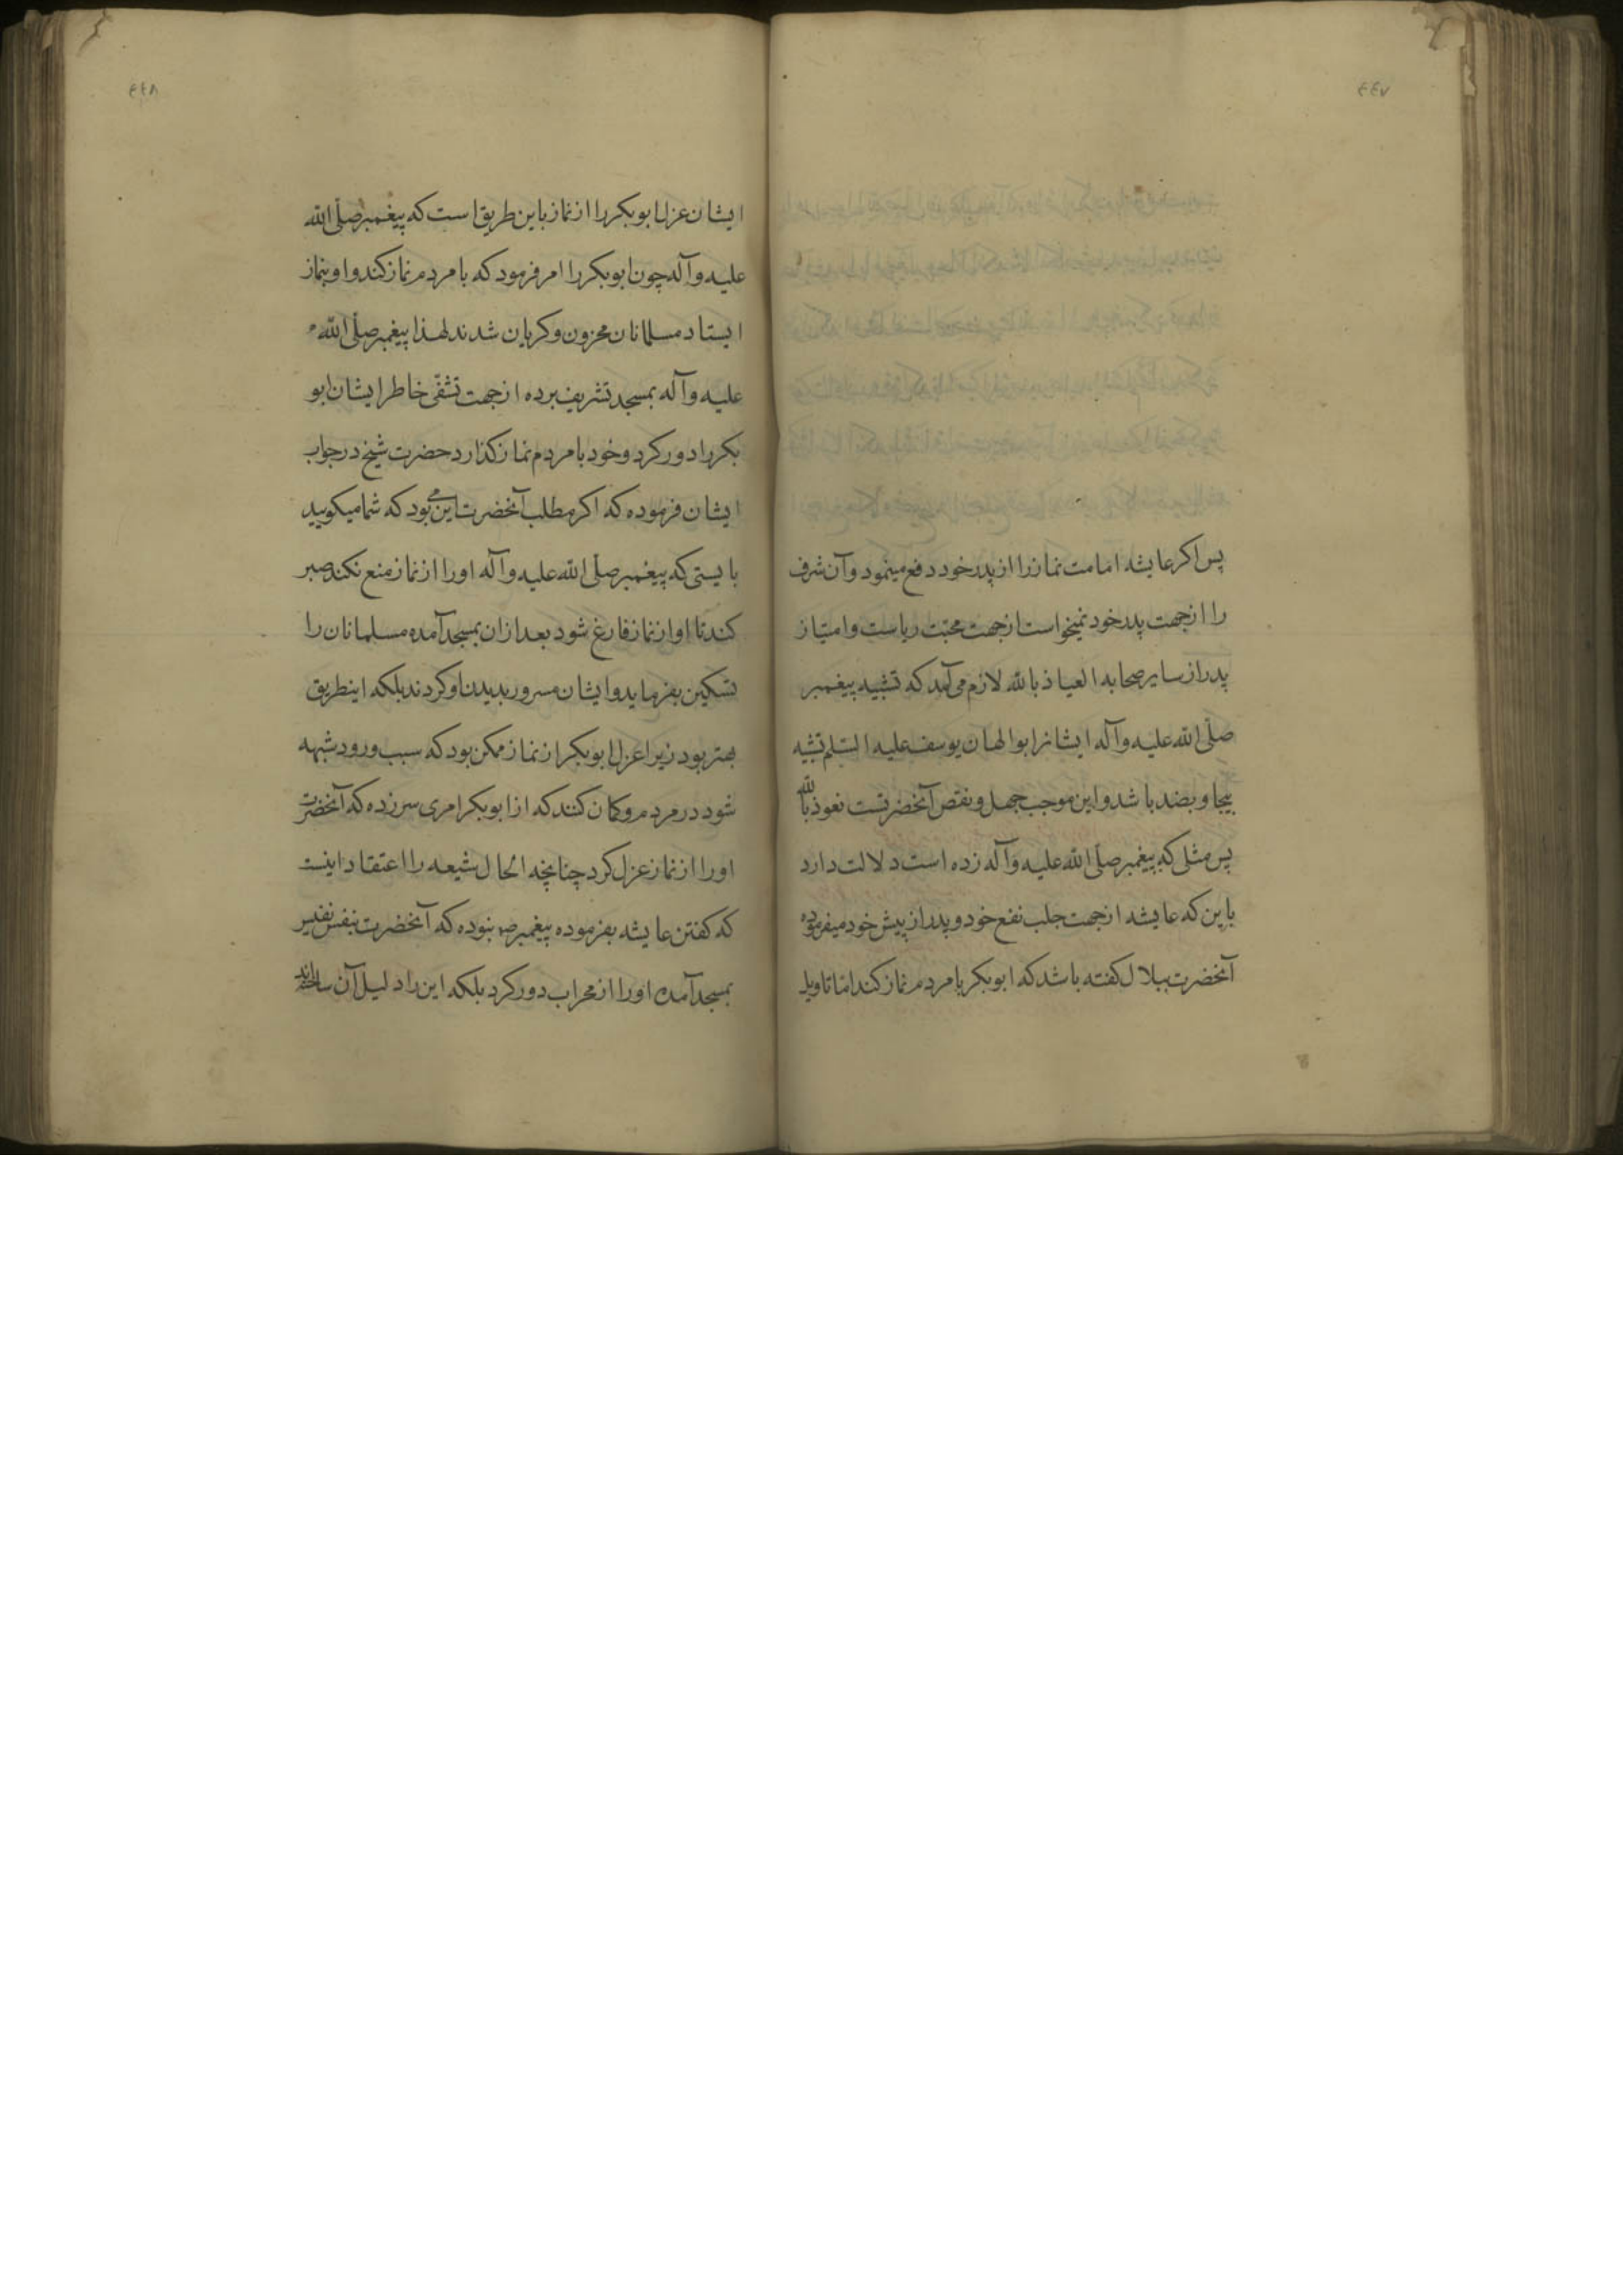 ٤٤٧
پس اکر عایشه امامت نماز را از پدر خود دفع مینمود و آن شرف
را از جهت پدر خود نمیخواست از جهت محبّت ریاست و امتیاز
پدر از سایر صحابه العیاذ بالله لازم می‌آمد که تشبیه پیغمبر
صلّی الله علیه وآله ایشانرا بوالهان یوسف علیه السّلم تشبّه
بیجا و بضد باشد و این موجب جهل و نقص آنحضرتست نعوذ بالله
پس مثلی که پیغمبر صلّی الله علیه وآله زده است دلالت دارد
باین که عایشه از جهت جلب نفع خود و پدر از پیش خود میفرموده
آنحضرت ببلال کفته باشد که ابوبکر بامردم نماز کند امّا تاویل
٤٤٨
ایشان عزل ابوبکر را از نماز باین طریق است که پیغمبر صلّی الله
علیه وآله چون ابوبکر را امر فرمود که بامردم نماز کند و او بنماز
ایستاد مسلمانان محزون و کریان شدند لهذا پیغمبر صلّی الله
علیه وآله بمسجد تشریف برده از جهت تشفّی خاطر ایشان ابو
بکر را دور کرد و خود بامردم نماز کذارد حضرت شیخ در جواب
ایشان فرموده که اکر مطلب آنحضرت این می بود که شما میکویید
بایستی که پیغمبر صلّی الله علیه وآله او را از نماز منع نکند صبر
کند تا او از نماز فارغ شود بعد ازان بمسجد آمده مسلمانان را
تسکین بفرماید و ایشان مسرور بدیدن او کردند بلکه اینطریق
بهتر بود زیرا عزل ابوبکر از نماز ممکن بود که سبب ورود شبهه
شود در مردم و کمان کنند که از ابوبکر امری سر زده که آنحضرت
او را از نماز عزل کرد چنانچه الحال شیعه را اعتقاد اینست
که کفتن عایشه بفرموده پیغمبر ص نبوده که آنحضرت بنفس نفیس
بمسجد آمده او را از محراب دور کرد بلکه این را دلیل آن ساخته‌اند